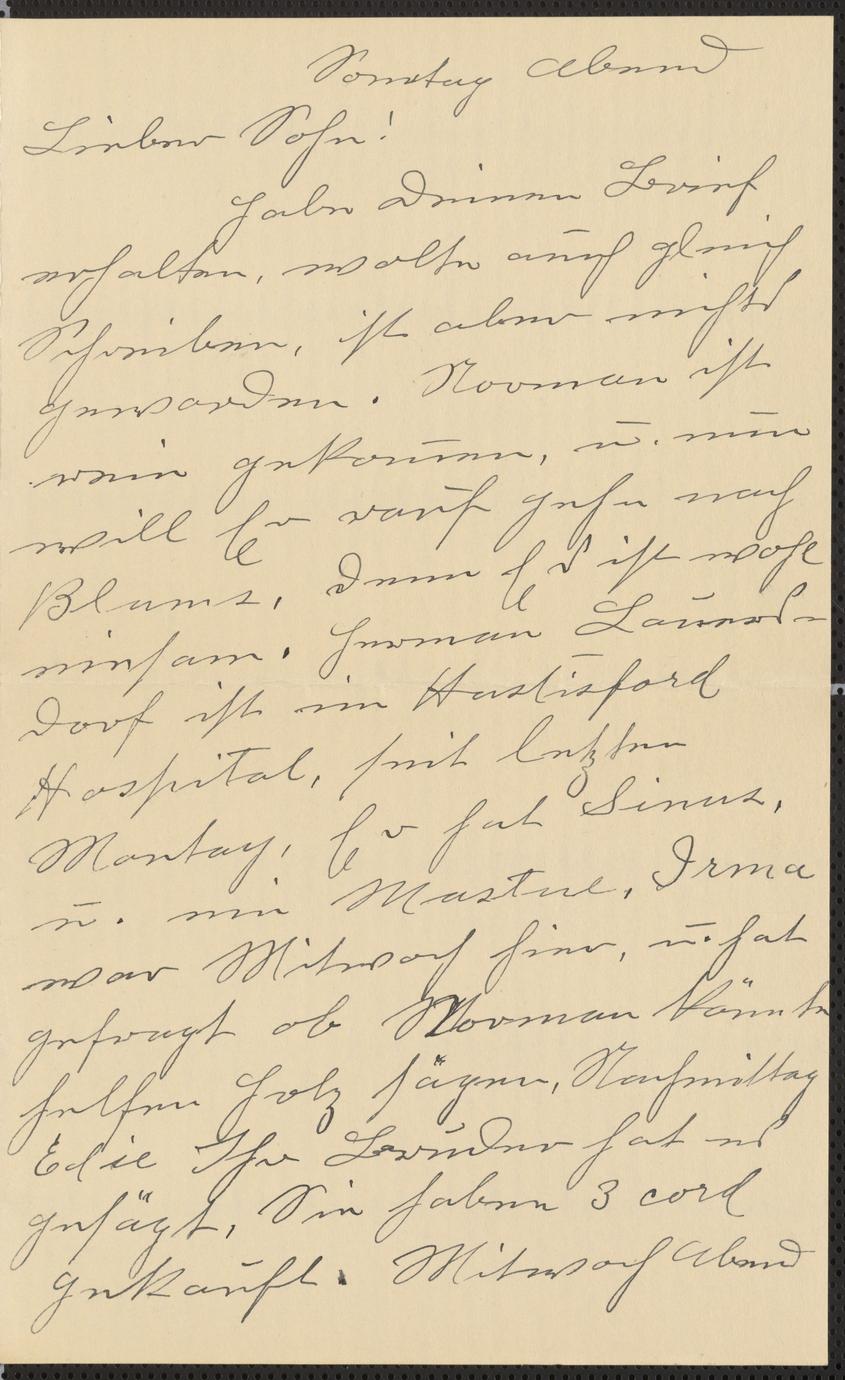 Sontag Abend
Lieber Sohn!
Habe Deinen Brief
erhalten, wolte auch gleich
Schreiben, ist aber nichts
geworden. Norman ist
rein gekomen, u. nun
will Er rauf gehn nach
Blums, denn Es ist wohl
einsam. Herman Lauers-
dorf ist im Hustisford
Hospital, seit letzten
Montag, Er hat Sinus,
u. ein Mastuc, Irma
war Mitwoch hier, u. hat
gefragt ob Norman könnte
helfen Holz sägen, Nachmittag
Edie Ihr Bruder hat es
gesägt, Sie haben 3 cord
gekauft. Mitwoch Abend